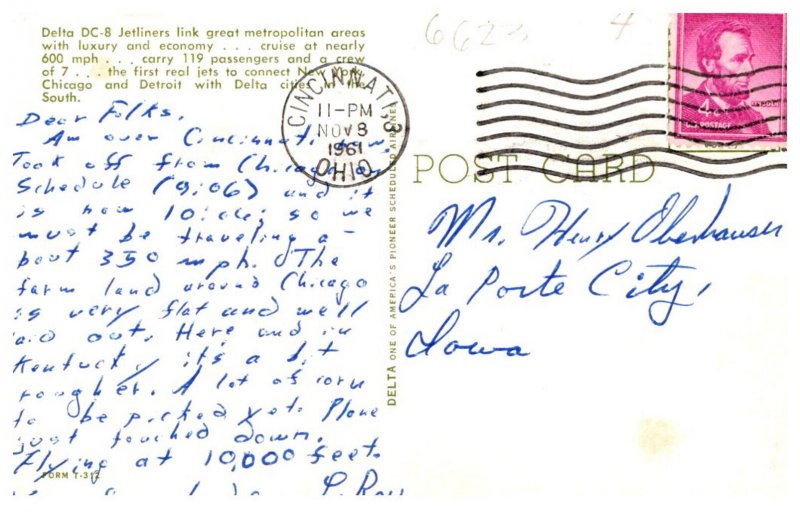 Delta DC-8 Jetliners link great metropolitan areas
with luxury and economy . . . cruise at nearly
600 mph . . . carry 119 passengers and a crew
of 7 . . . the first real jets to connect New York,
Chicago and Detroit with Delta cities in the
South.
Dear Folks,
Am over Cincinnati now
Took off from Chicago on
Schedule (9:06) and it
is now 10:00; so we
must be traveling a-
bout 350 mph. The
farm land around Chicago
is very flat and well
laid out. Here and in
Kentucky it's a bit
rougher. A lot of corn
to be picked yet. Plane
just touched down.
Flying at 10,000 feet.
L. Roy
FORM T-312
CINCINNATI, 3
11-PM
NOV 8
1961
OHIO
6623
4
4¢
LINCOLN
U.S. POSTAGE
POST CARD
DELTA ONE OF AMERICA'S PIONEER SCHEDULED AIRLINES
Mr. Henry Oberhauser
La Porte City,
Iowa